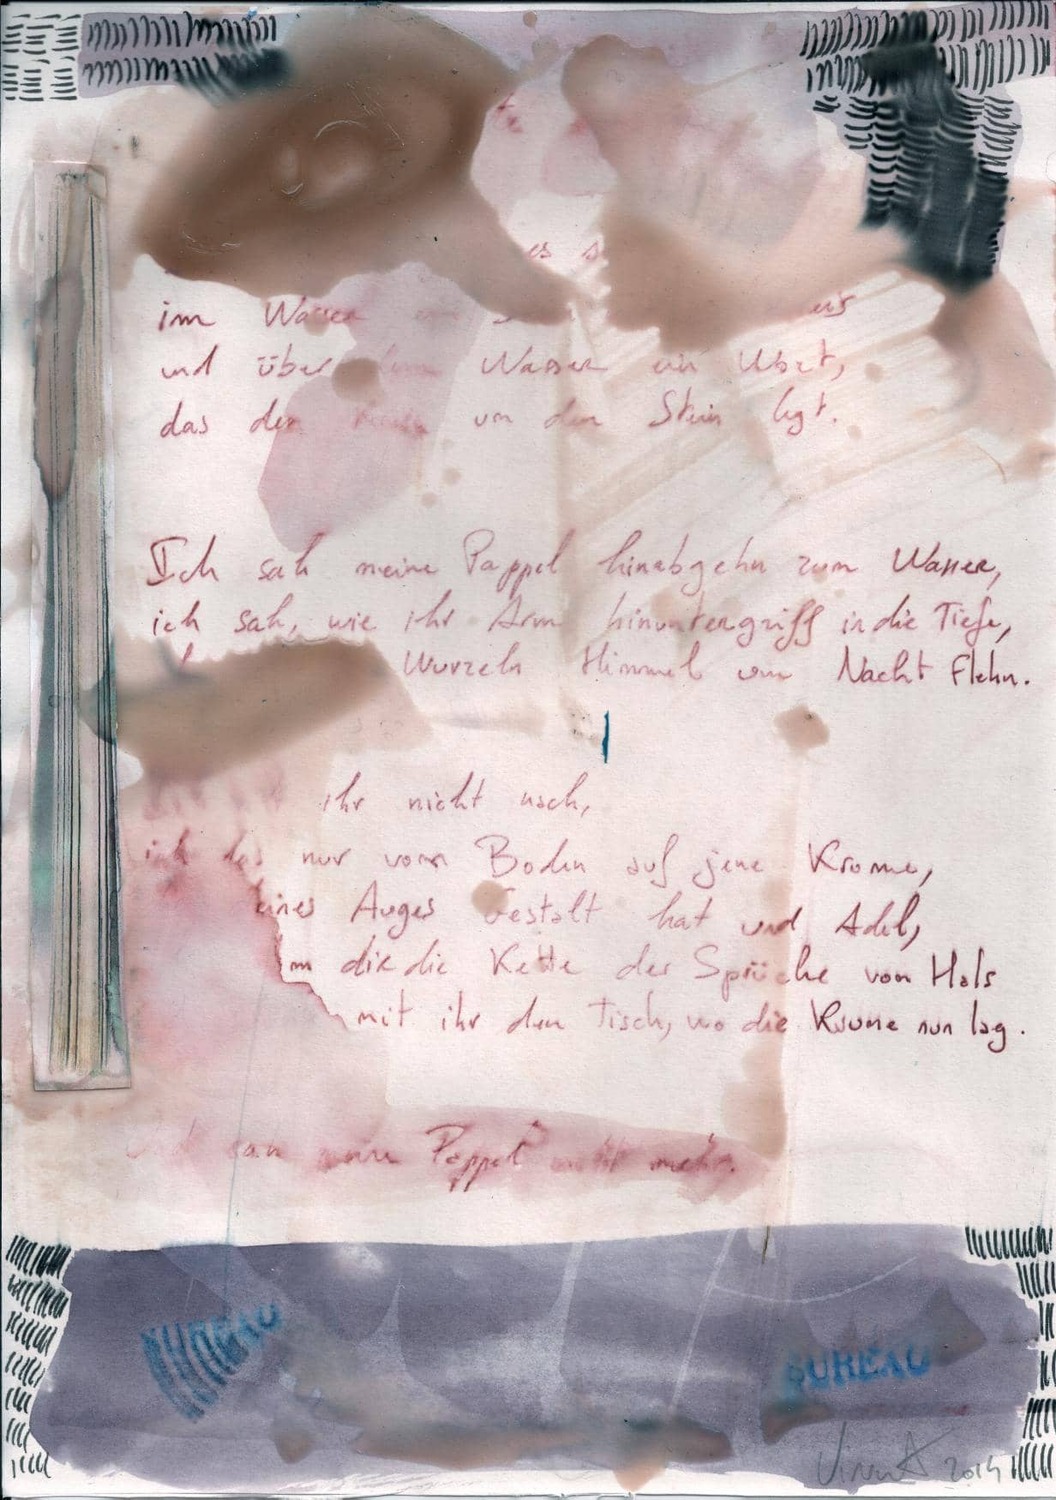 es
im Wasser
und über dem Wasser ein Wort,
das den um den Stein legt.
Ich sah meine Pappel hinabgehn zum Wasser,
ich sah, wie ihr Arm hinuntergriff in die Tiefe,
Wurzeln Himmel um Nacht flehn.
ihr nicht nach,
ich las nur vom Boden auf jene Krume,
eines Auges Gestalt hat und Adel,
m dir die Kette der Sprüche vom Hals
mit ihr den Tisch, wo die Krume nun lag.
Und sah meine Pappel nicht mehr.
BUREAU
BUREAU
2014